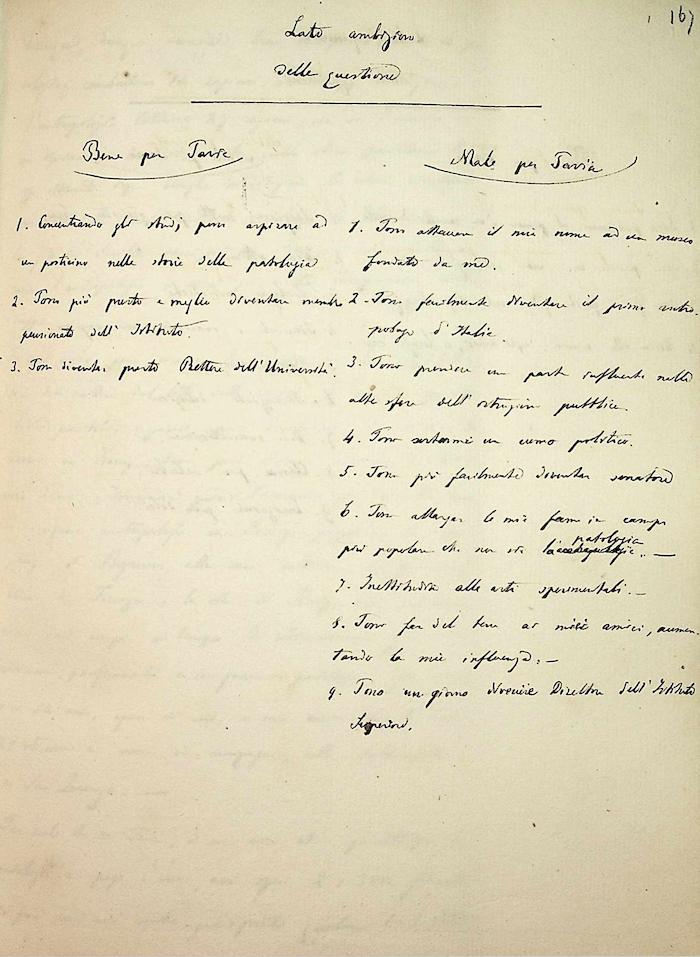 167
Lato ambizioso
della questione
Bene per Pavia
Male per Pavia
1. Concentrando gli studj posso aspirare ad
un posticino nella storia della patologia
2. Posso più presto e meglio diventare membro
pensionato dell'Istituto.
3. Posso diventar presto Rettore dell'Università.
1. Posso attaccare il mio nome ad un museo
fondato da me.
2. Posso facilmente diventare il primo antro-
pologo d'Italia.
3. Posso prendere un parte influente nelle
alte sfere dell'istruzione pubblica.
4. Posso un uomo politico.
5. Posso più facilmente diventar senatore
6. Posso allargar la mia fama in campi
più popolari che non sia la patologia. —
7. Inettitudine alle arti sperimentali. —
8. Posso far del bene ai miei amici, aumen
tando la mia influenza. —
9. Posso un giorno divenire Direttore dell'Istituto
Superiore.